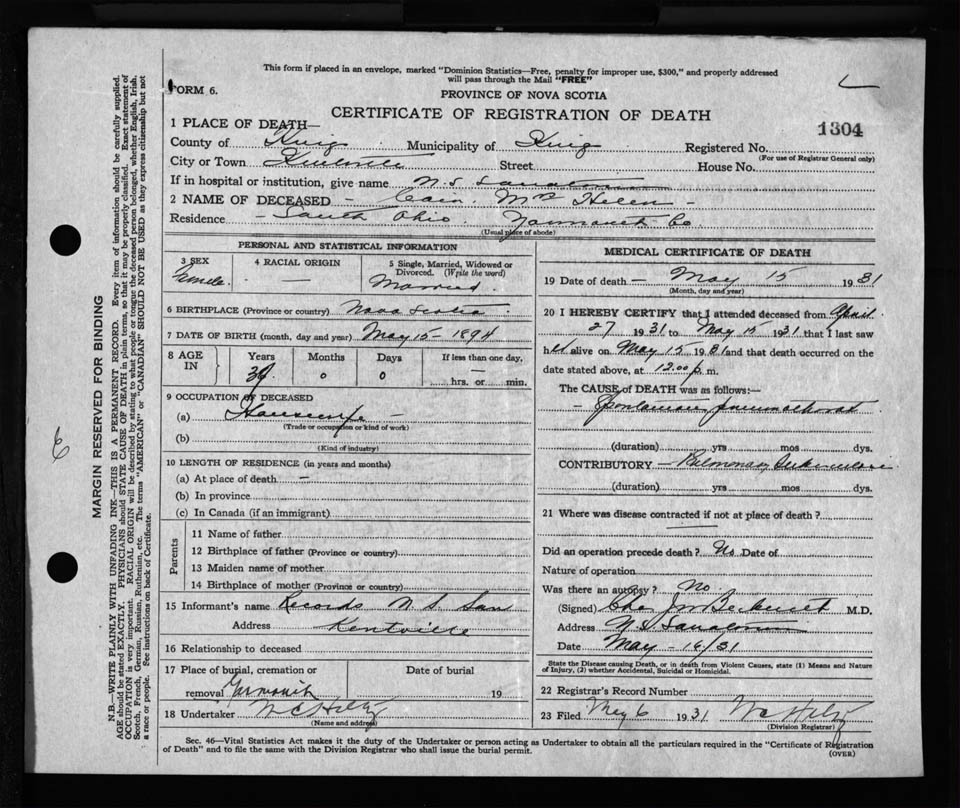 This form if placed in an envelope, marked "Dominion Statistics—Free, penalty for improper use, $300," and properly addressed
will pass through the Mail "FREE"
FORM 6.
PROVINCE OF NOVA SCOTIA
CERTIFICATE OF REGISTRATION OF DEATH
1304
1 PLACE OF DEATH—
County of Kings Municipality of Kings Registered No.
(For use of Registrar General only)
City or Town Kentville Street House No.
If in hospital or institution, give name N. S. Sanatorium
2 NAME OF DECEASED - Cain, Mrs Helen -
Residence - South Ohio. Yarmouth Co
(Usual place of abode)
PERSONAL AND STATISTICAL INFORMATION
3 SEX
Female
4 RACIAL ORIGIN
—
5 Single, Married, Widowed or
Divorced. (Write the word)
Married.
6 BIRTHPLACE (Province or country) Nova Scotia
7 DATE OF BIRTH (month, day and year) May 15 - 1894
8 AGE
IN
Years Months Days If less than one day,
0 0 —
hrs. or min.
9 OCCUPATION OF DECEASED
(a) Housewife -
(Trade or occupation or kind of work)
(b)
(Kind of industry)
10 LENGTH OF RESIDENCE (in years and months)
(a) At place of death -
(b) In province
(c) In Canada (if an immigrant)
Parents
11 Name of father
12 Birthplace of father (Province or country)
13 Maiden name of mother
14 Birthplace of mother (Province or country)
15 Informant's name Records N. S. San
Address Kentville
16 Relationship to deceased
17 Place of burial, cremation or
removal Yarmouth
Date of burial
19
18 Undertaker
(Name and address)
MEDICAL CERTIFICATE OF DEATH
19 Date of death - May 15 1931
(Month, day and year)
20 I HEREBY CERTIFY that I attended deceased from April
27 1931 to May 15 1931 that I last saw
her alive on May 15 1931 and that death occurred on the
date stated above, at 12.00 p. m.
The CAUSE of DEATH was as follows:—
- Spontaneous Pneumothorax
(duration) yrs mos dys.
CONTRIBUTORY - Pulmonary Tuberculosis
(duration) yrs mos dys.
21 Where was disease contracted if not at place of death?
Did an operation precede death? No Date of
Nature of operation
Was there an autopsy? No
(Signed) M.D.
Address N. S. Sanatorium
Date May - 16/31
State the Disease causing Death, or in death from Violent Causes, state (1) Means and Nature
of Injury, (2) whether Accidental, Suicidal or Homicidal.
22 Registrar's Record Number
23 Filed May 6 1931
(Division Registrar)
Sec. 46—Vital Statistics Act makes it the duty of the Undertaker or person acting as Undertaker to obtain all the particulars required in the "Certificate of Registration
of Death" and to file the same with the Division Registrar who shall issue the burial permit.
(OVER)
6
MARGIN RESERVED FOR BINDING
N.B.—WRITE PLAINLY WITH UNFADING INK—THIS IS A PERMANENT RECORD. Every item of information should be carefully supplied.
AGE should be stated EXACTLY. PHYSICIANS should STATE CAUSE OF DEATH in plain terms, so that it may be properly classified. Exact statement of
OCCUPATION is very important. RACIAL ORIGIN will be described by stating to what people or tongue the deceased person belonged, whether English, Irish,
Scotch, French, German, Russian, Ruthenian, etc. The terms "AMERICAN" or "CANADIAN" SHOULD NOT BE USED as they express citizenship but not
a race or people. See instructions on back of Certificate.